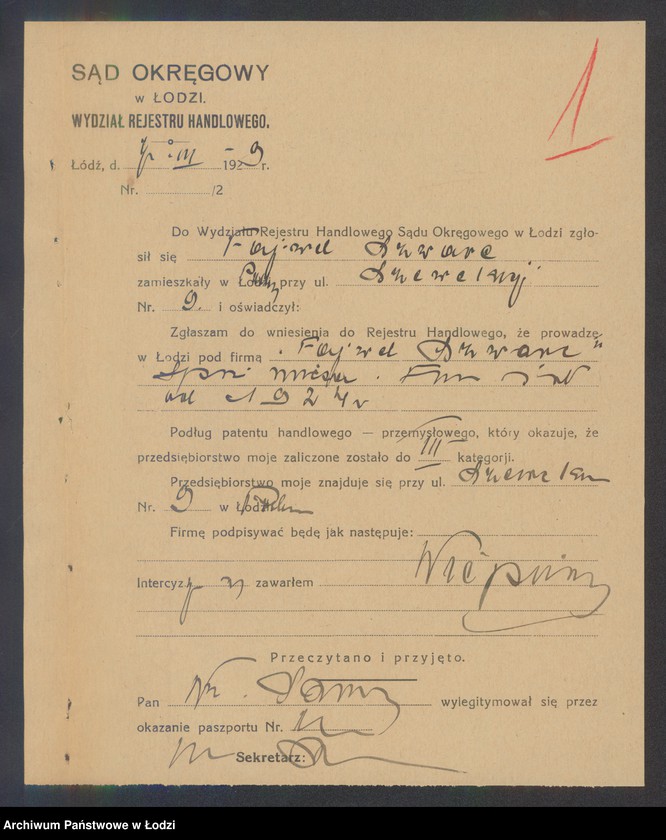 SĄD OKRĘGOWY
W ŁODZI.
WYDZIAŁ REJESTRU HANDLOWEGO.
1
Łódź, d. III 1929 r.
Nr. /2
Do Wydziału Rejestru Handlowego Sądu Okręgowego w Łodzi zgło-
sił się Fajwel Szwarc
zamieszkały w Łodzi przy ul. Szewckiej
Nr. 9. i oświadczył:
Zgłaszam do wniesienia do Rejestru Handlowego, że prowadzę
w Łodzi pod firmą „Fajwel Szwarc"
od 1924 r
Podług patentu handlowego — przemysłowego, który okazuje, że
przedsiębiorstwo moje zaliczone zostało do III kategorji.
Przedsiębiorstwo moje znajduje się przy ul.
Nr. 9 w
Firmę podpisywać będę jak następuje:
Intercyzy zawarłem
Przeczytano i przyjęto.
Pan wylegitymował się przez
okazanie paszportu Nr.
Sekretarz:
Archiwum Państwowe w Łodzi